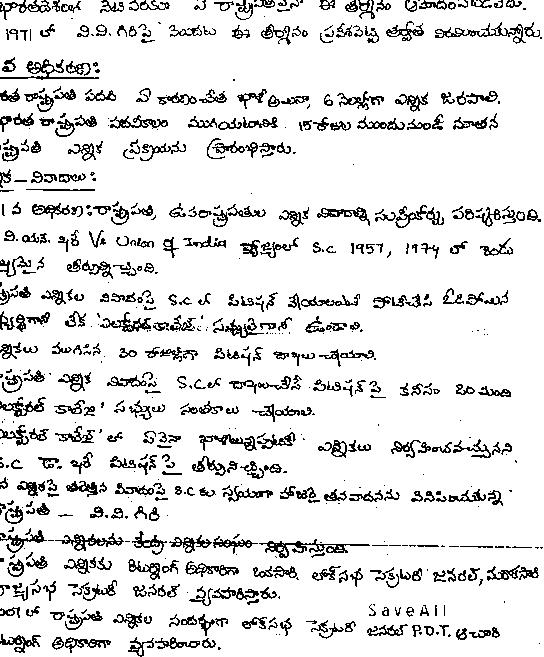 1971 లో వి.వి. గిరిపై మొదట ఈ తీర్మానం ప్రవేశపెట్టి తర్వాత విరమించుకున్నారు.
వ అధికరణ:
రత రాష్ట్రపతి పదవి ఏ కారణంచేత ఖాళీ అయినా, 6 నెలల్లోగా ఎన్నిక జరపాలి.
భారత రాష్ట్రపతి పదవీకాలం ముగియటానికి 15 రోజుల ముందునుండే నూతన
ష్ట్రపతి ఎన్నిక ప్రక్రియను ప్రారంభిస్తారు.
క – వివాదాలు:
1 వ అధికరణ: రాష్ట్రపతి, ఉపరాష్ట్రపతుల ఎన్నిక వివాదాన్ని సుప్రీంకోర్టు పరిష్కరిస్తుంది.
వి. యన్. ఖరే Vs Union of India వ్యాజ్యంలో S.C 1957, 1974 లో రెండు
మైన తీర్పునిచ్చింది.
ష్ట్రపతి ఎన్నికల వివాదంపై S.C లో పిటిషన్ వేయాలంటే పోటీచేసి ఓడిపోయిన
గానీ లేక 'ఎలక్టోరల్ కాలేజీ' సభ్యుడైగానీ ఉండాలి.
న్నికలు ముగిసిన 30 రోజుల్లోగా పిటిషన్ దాఖలు చేయాలి.
ష్ట్రపతి ఎన్నిక వివాదంపై S.C లో దాఖలుచేసే పిటిషన్ పై కనీసం 20 మంది
లక్టోరల్ కాలేజీ' సభ్యులు సంతకాలు చేయాలి.
లక్టోరల్ కాలేజీ' లో ఏవైనా ఖాళీలున్నప్పటికీ ఎన్నికలు నిర్వహించవచ్చునని
S.C డా. ఖరే పిటిషన్ పై తీర్పునిచ్చింది.
న ఎన్నికపై తలెత్తిన వివాదంపై S.C కు స్వయంగా హాజరై తనవాదనను వినిపించుకున్న
రాష్ట్రపతి – వి.వి. గిరి
రాష్ట్రపతి ఎన్నికలను కేంద్ర ఎన్నికల సంఘం నిర్వహిస్తుంది.
ష్ట్రపతి ఎన్నికకు రిటర్నింగ్ అధికారిగా ఒకసారి లోక్‌సభ సెక్రటరీ జనరల్, మరొకసారి
రాజ్యసభ సెక్రటరీ జనరల్ వ్యవహరిస్తారు.
లో రాష్ట్రపతి ఎన్నికల సందర్భంగా లోక్‌సభ సెక్రటరీ జనరల్ P.D.T. ఆచారి
రిటర్నింగ్ అధికారిగా వ్యవహరించారు.
SaveAll